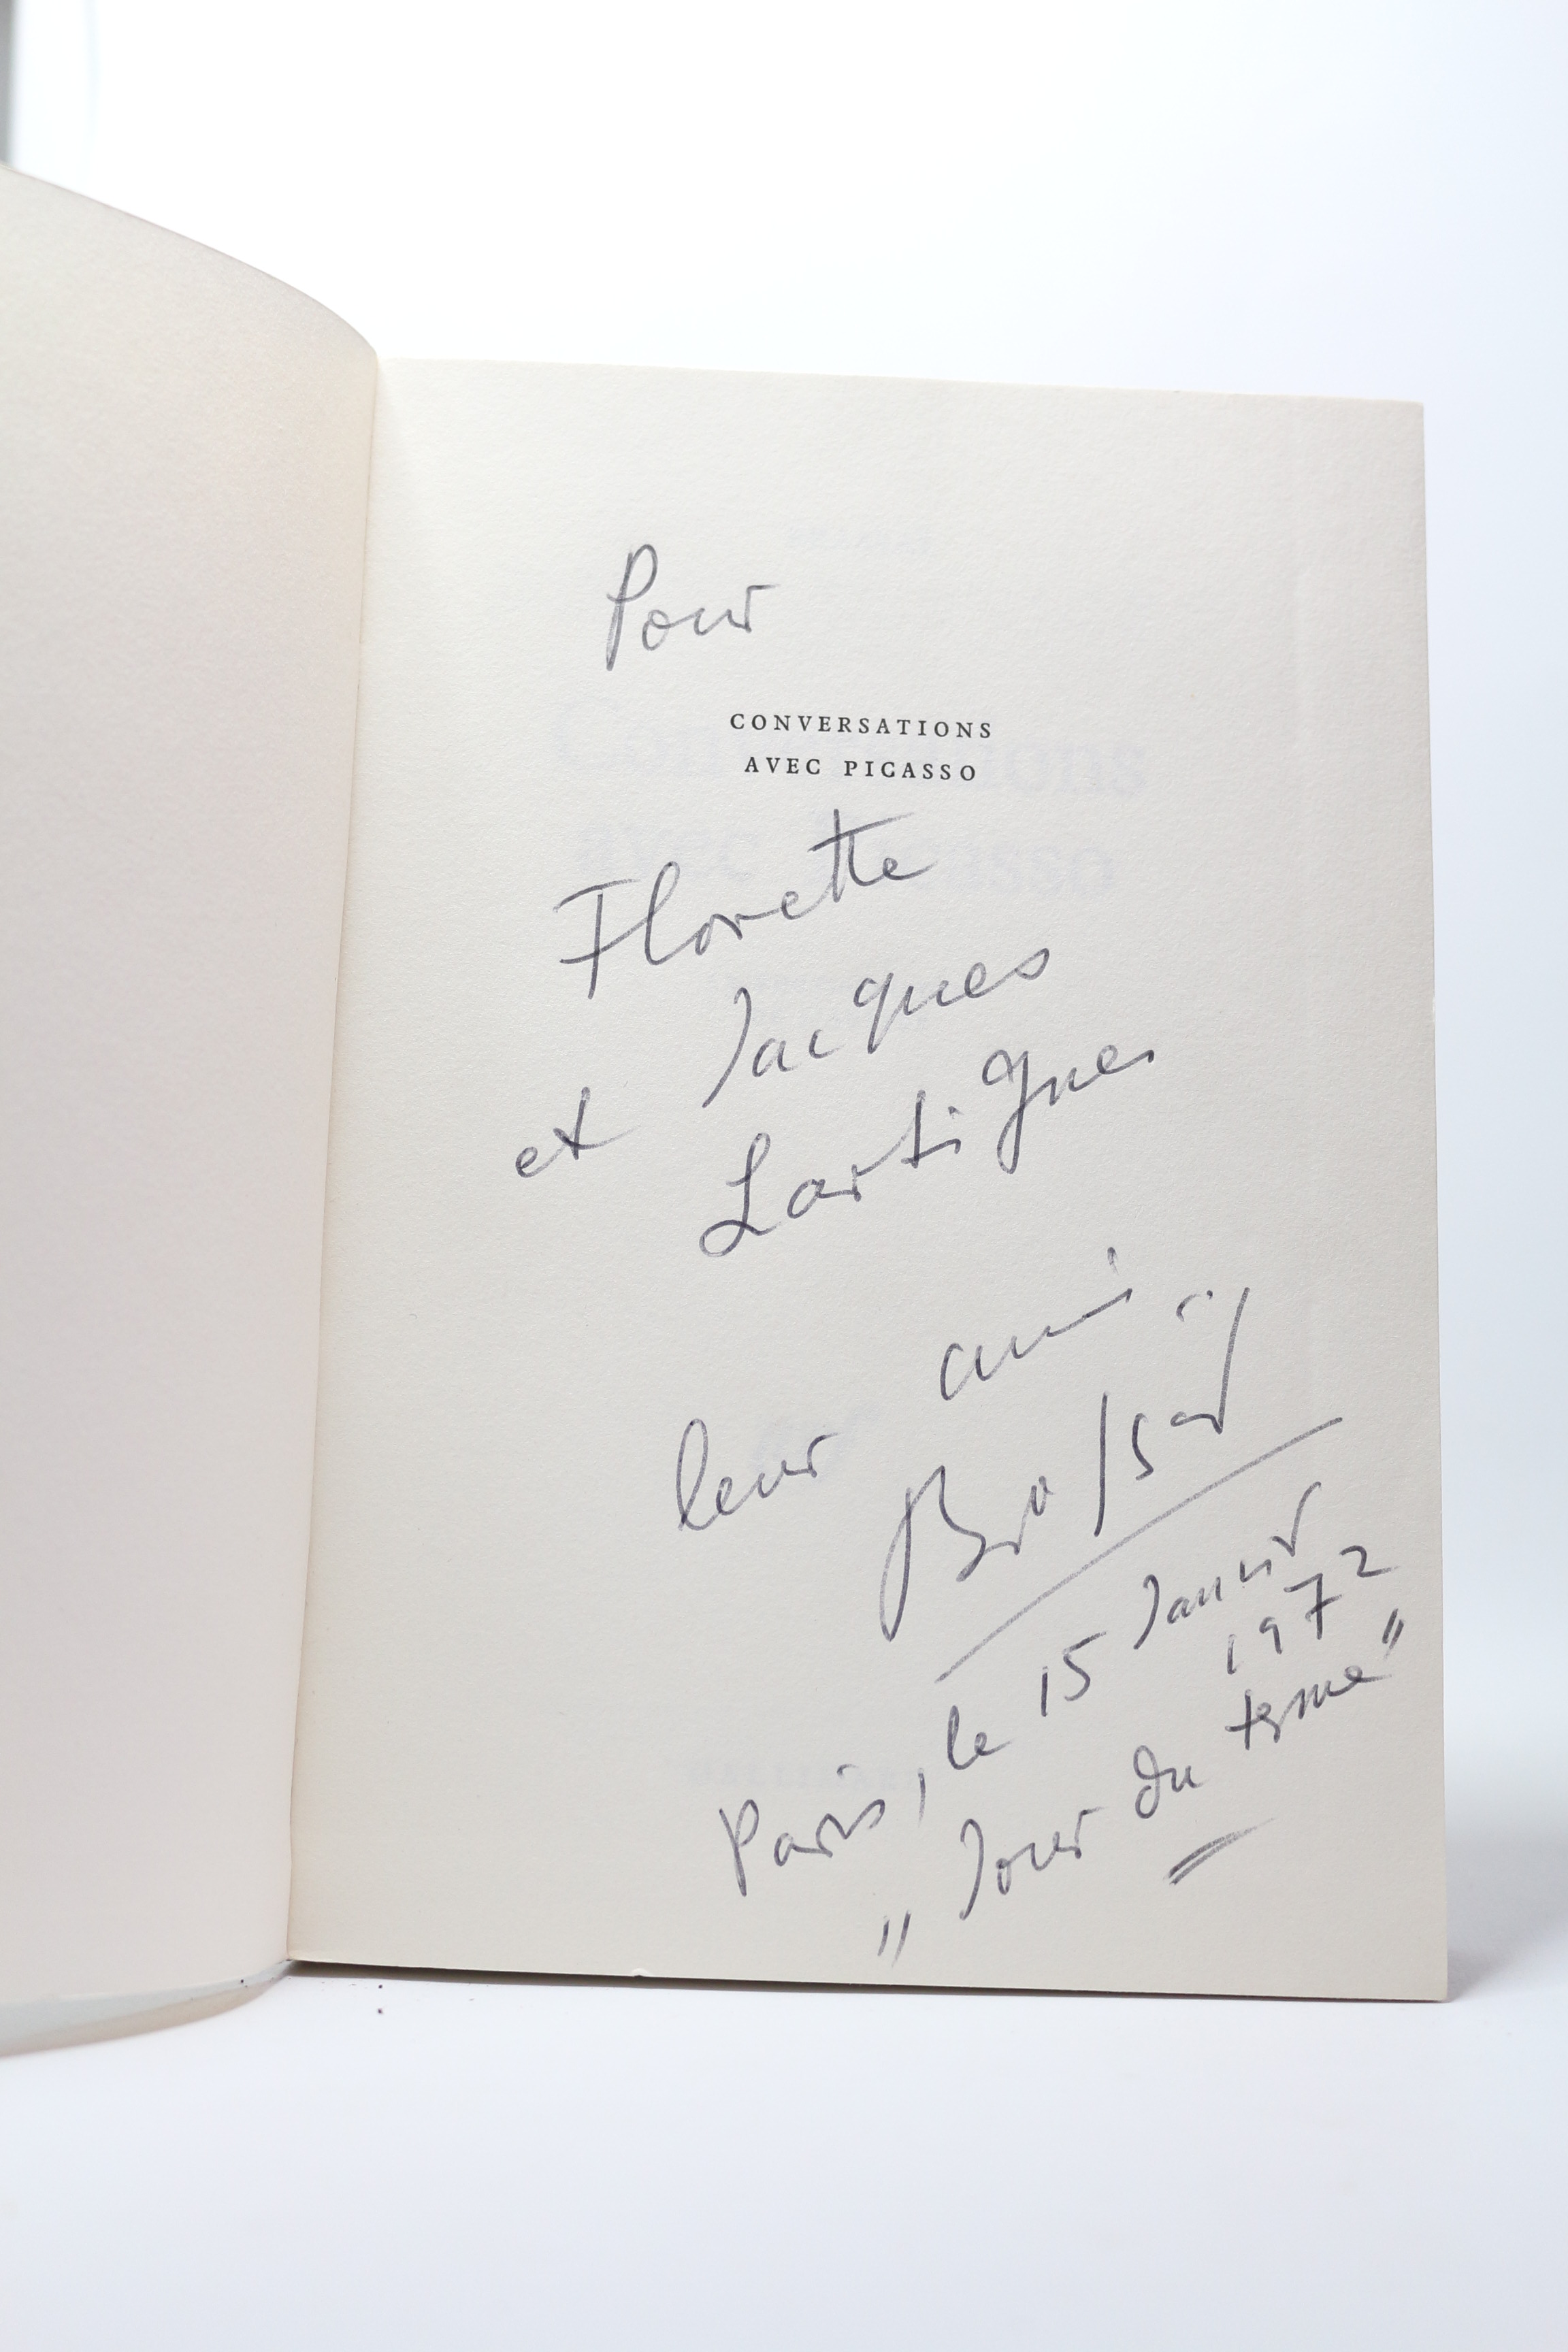 Pour
CONVERSATIONS
AVEC PICASSO
Florette
et Jacques
Lartigues
leur ami
Brassaï
Paris, le 15 Janvier
1972
"Jour du terme"